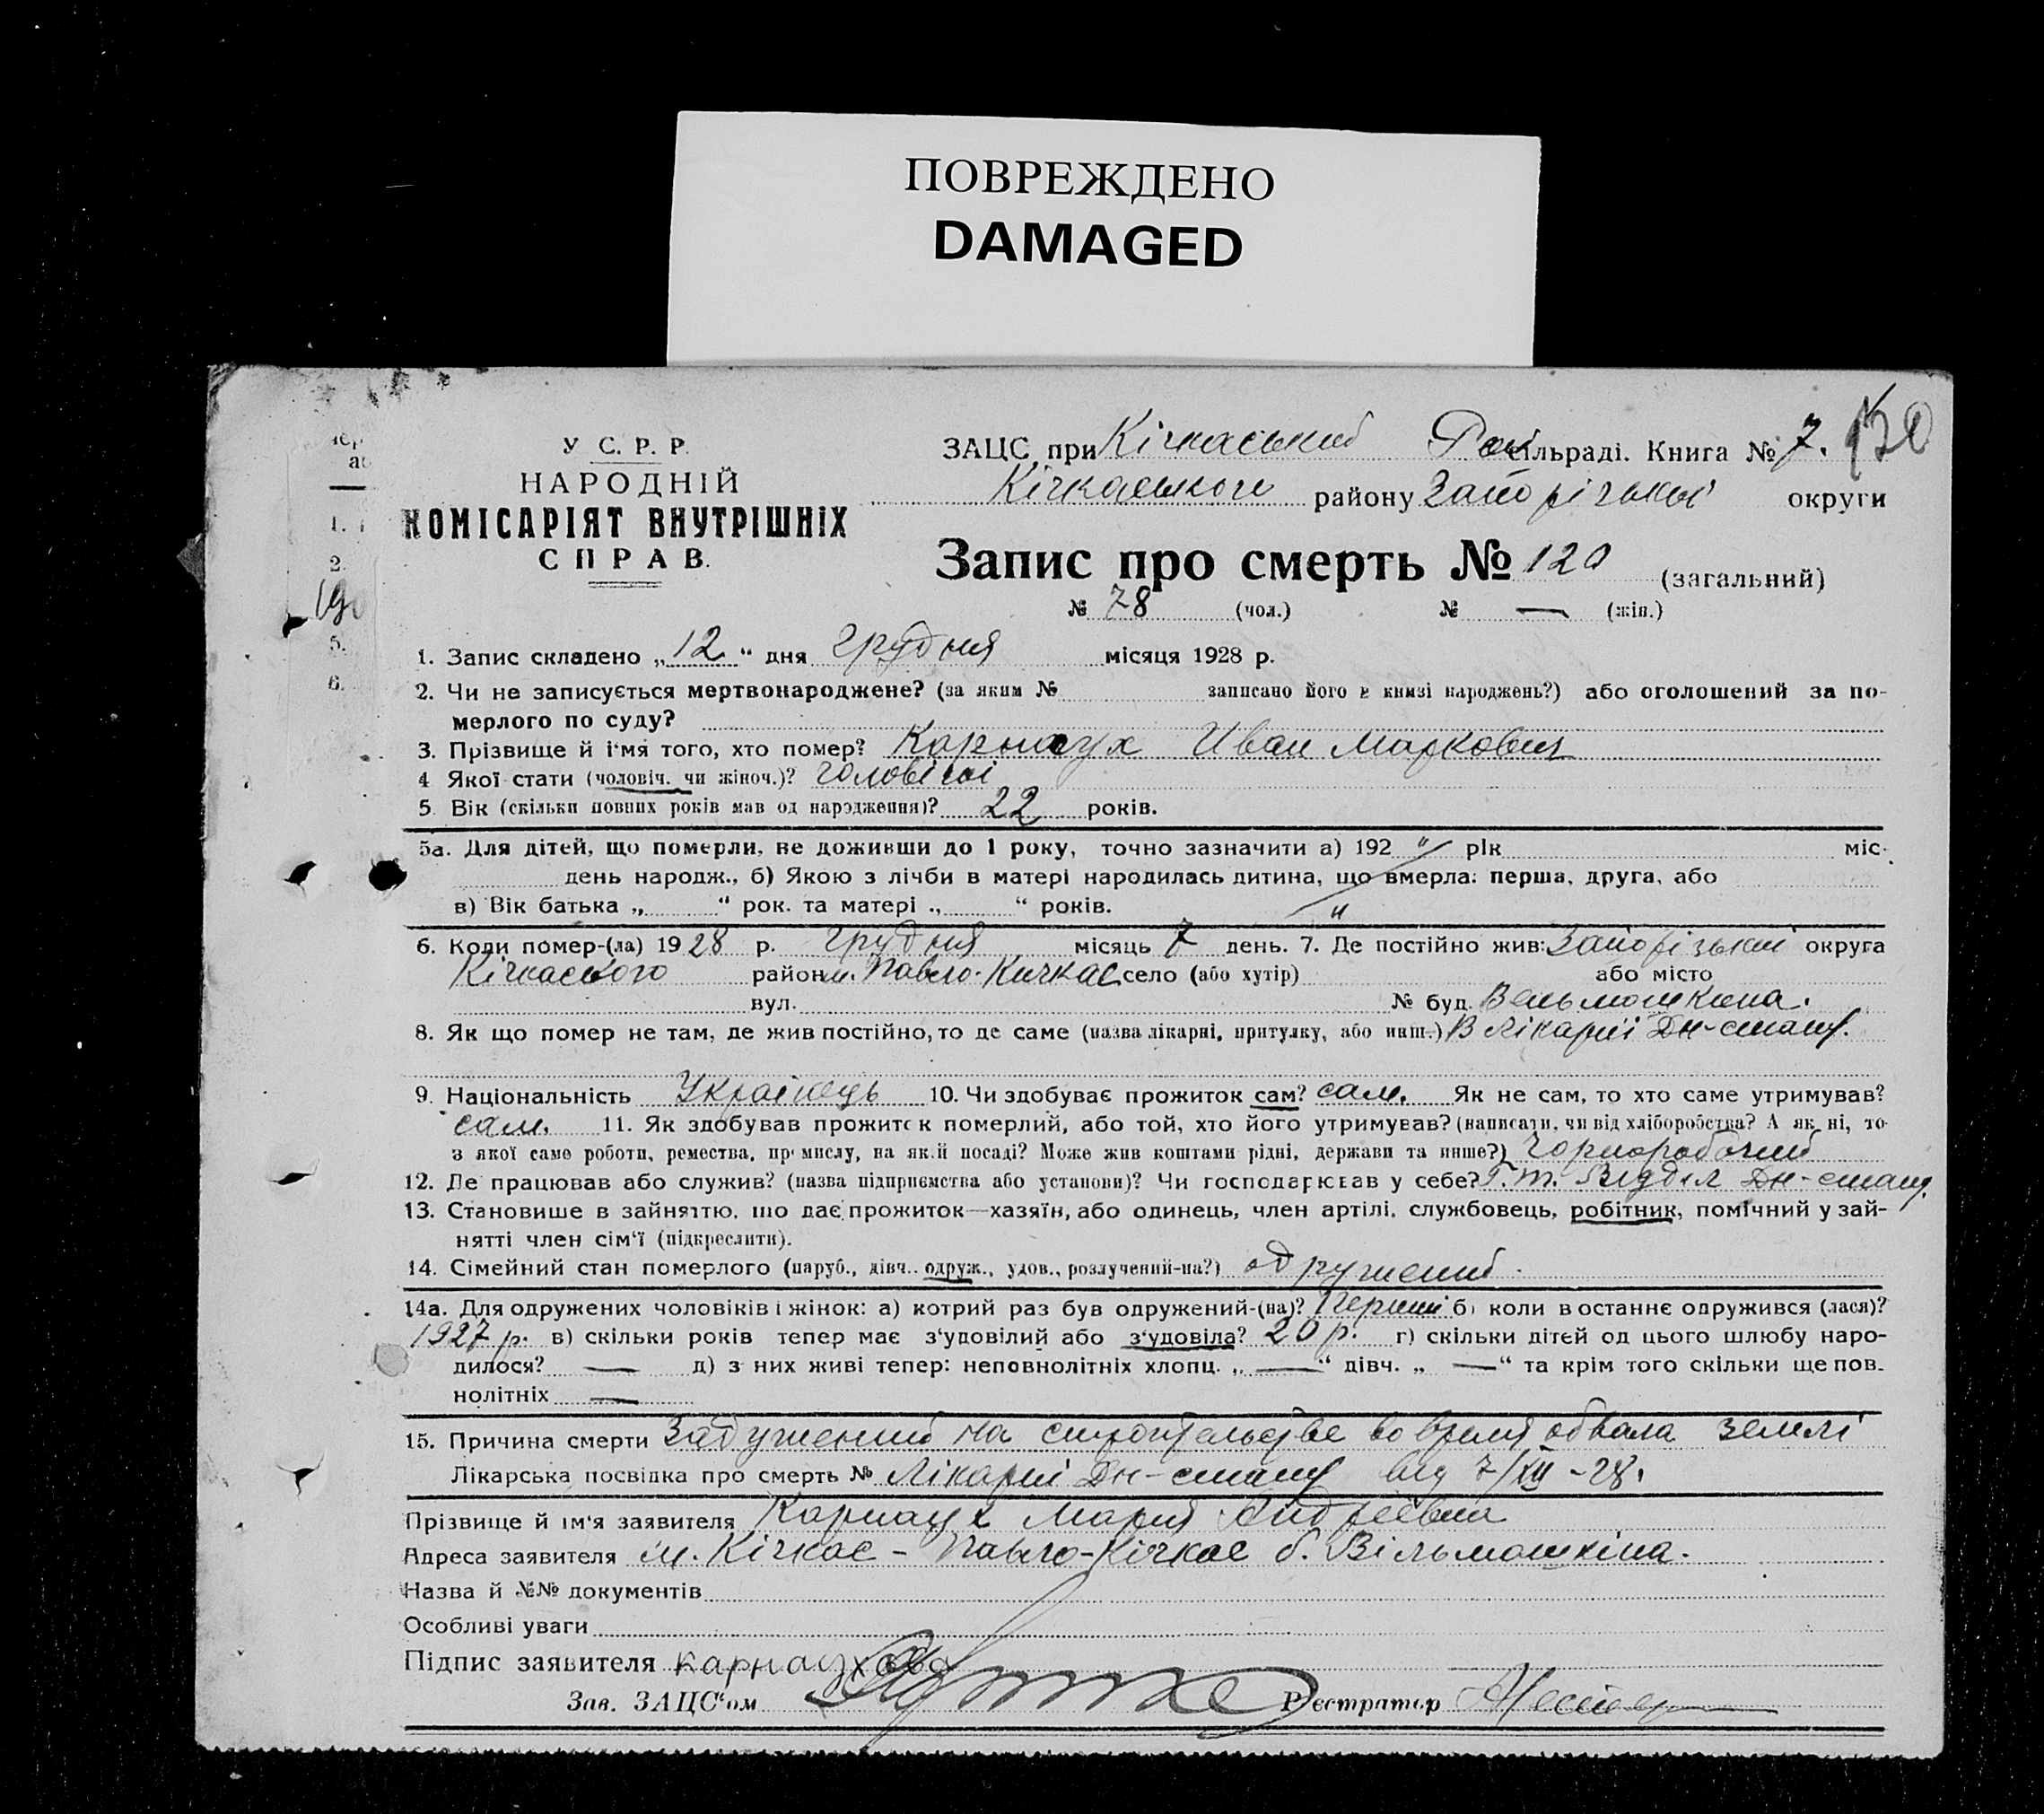 ПОВРЕЖДЕНО
DAMAGED
У С. Р. Р.
НАРОДНІЙ
КОМІСАРІЯТ ВНУТРІШНІХ
СПРАВ.
ЗАЦС при Кічкаський Рай сільраді. Книга № 7.
Кічкаського району Запорізької округи
Запис про смерть № 120 (загальний)
№ 78 (чол.) № — (жін.)
1. Запис складено „12“ дня грудня місяця 1928 р.
2. Чи не записується мертвонароджене? (за яким № записано його в книзі народжень?) або оголошений за по-
мерлого по суду?
3. Прізвище й ім'я того, хто помер? Карнаух Иван Маркович
4 Якої стати (чоловіч. чи жіноч.)? чоловічої
5. Вік (скільки повних років мав од народження)? 22 років.
5а. Для дітей, що померли, не доживши до 1 року, точно зазначити а) 192 „ рік міс.
день народж., б) Якою з лічби в матері народилась дитина, що вмерла: перша, друга, або
в) Вік батька „ “ рок. та матері „ “ років. „
6. Коли помер-(ла) 1928 р. грудня місяць 7 день. 7. Де постійно жив: Запорізької округа
Кічкаського район м. Павло-Кичкас село (або хутір) або місто
вул. № буд. Вельмошкина.
8. Як що помер не там, де жив постійно, то де саме (назва лікарні, притулку, або инш.) В Лікарні Дн-стану.
9. Національність Українець 10. Чи здобуває прожиток сам? сам. Як не сам, то хто саме утримував?
сам. 11. Як здобував прожиток померлий, або той, хто його утримував? (написати, чи від хліборобства? А як ні, то
з якої саме роботи, ремества, промислу, на якій посаді? Може жив коштами рідні, держави та инше?) Чорноробочий
12. Де працював або служив? (назва підприємства або установи)? Чи господарював у себе? Г.т. Відділ Дн-стану.
13. Становище в зайняттю, що дає прожиток—хазяїн, або одинець, член артілі, службовець, робітник, помічний у зай-
нятті член сім'ї (підкреслити).
14. Сімейний стан померлого (паруб., дівч.. одруж., удов., розлучений-на?) одружений.
14а. Для одружених чоловіків і жінок: а) котрий раз був одружений-(на)? Перший б) коли востаннє одружився (лася)?
1927 р. в) скільки років тепер має з'удовілий або з'удовіла? 20 р. г) скільки дітей од цього шлюбу наро-
дилося? — д) з них живі тепер: неповнолітніх хлопц. „ — “ дівч. „ — “ та крім того скільки ще пов-
нолітніх —
15. Причина смерти Задушений на строительстве во время обвала землі
Лікарська посвідка про смерть № Лікарні Дн-стану від 7/XII-28.
Прізвище й ім'я заявителя Карнаух Мария Андреевна
Адреса заявителя м. Кічкас - Павло-Кічкас б. Вільмошкіна.
Назва й №№ документів
Особливі уваги
Підпис заявителя карнаухова
Зав. ЗАЦС'ом Реєстратор